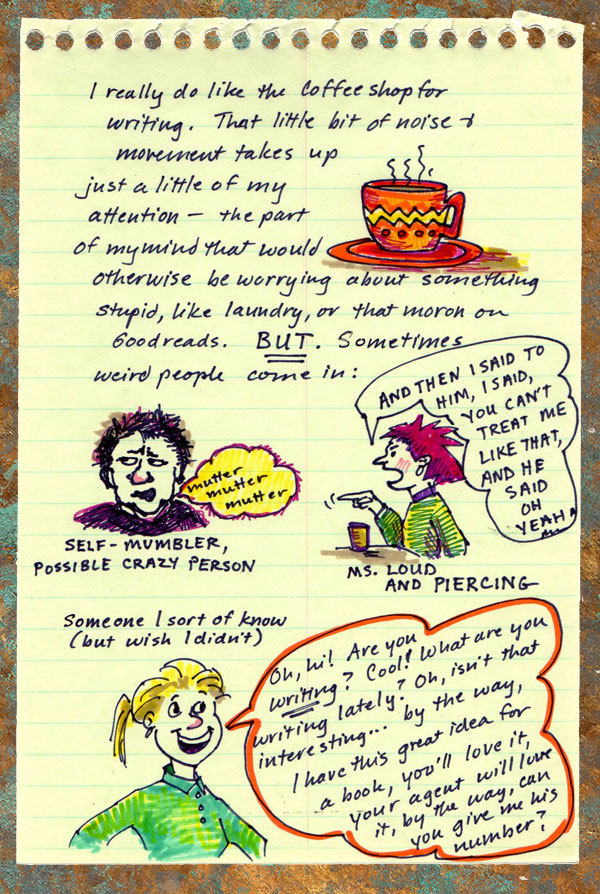 I really do like the coffee shop for
writing. That little bit of noise &
movement takes up
just a little of my
attention — the part
of my mind that would
otherwise be worrying about something
stupid, like laundry, or that moron on
Goodreads. BUT. Sometimes
weird people come in:
mutter
mutter
mutter
SELF-MUMBLER,
POSSIBLE CRAZY PERSON
AND THEN I SAID TO
HIM, I SAID,
YOU CAN'T
TREAT ME
LIKE THAT,
AND HE
SAID
OH
YEAH
MS. LOUD
AND PIERCING
Someone I sort of know
(but wish I didn't)
Oh, hi! Are you
writing? Cool! What are you
writing lately? Oh, isn't that
interesting... by the way,
I have this great idea for
a book, you'll love it,
your agent will love
it, by the way, can
you give me his
number?